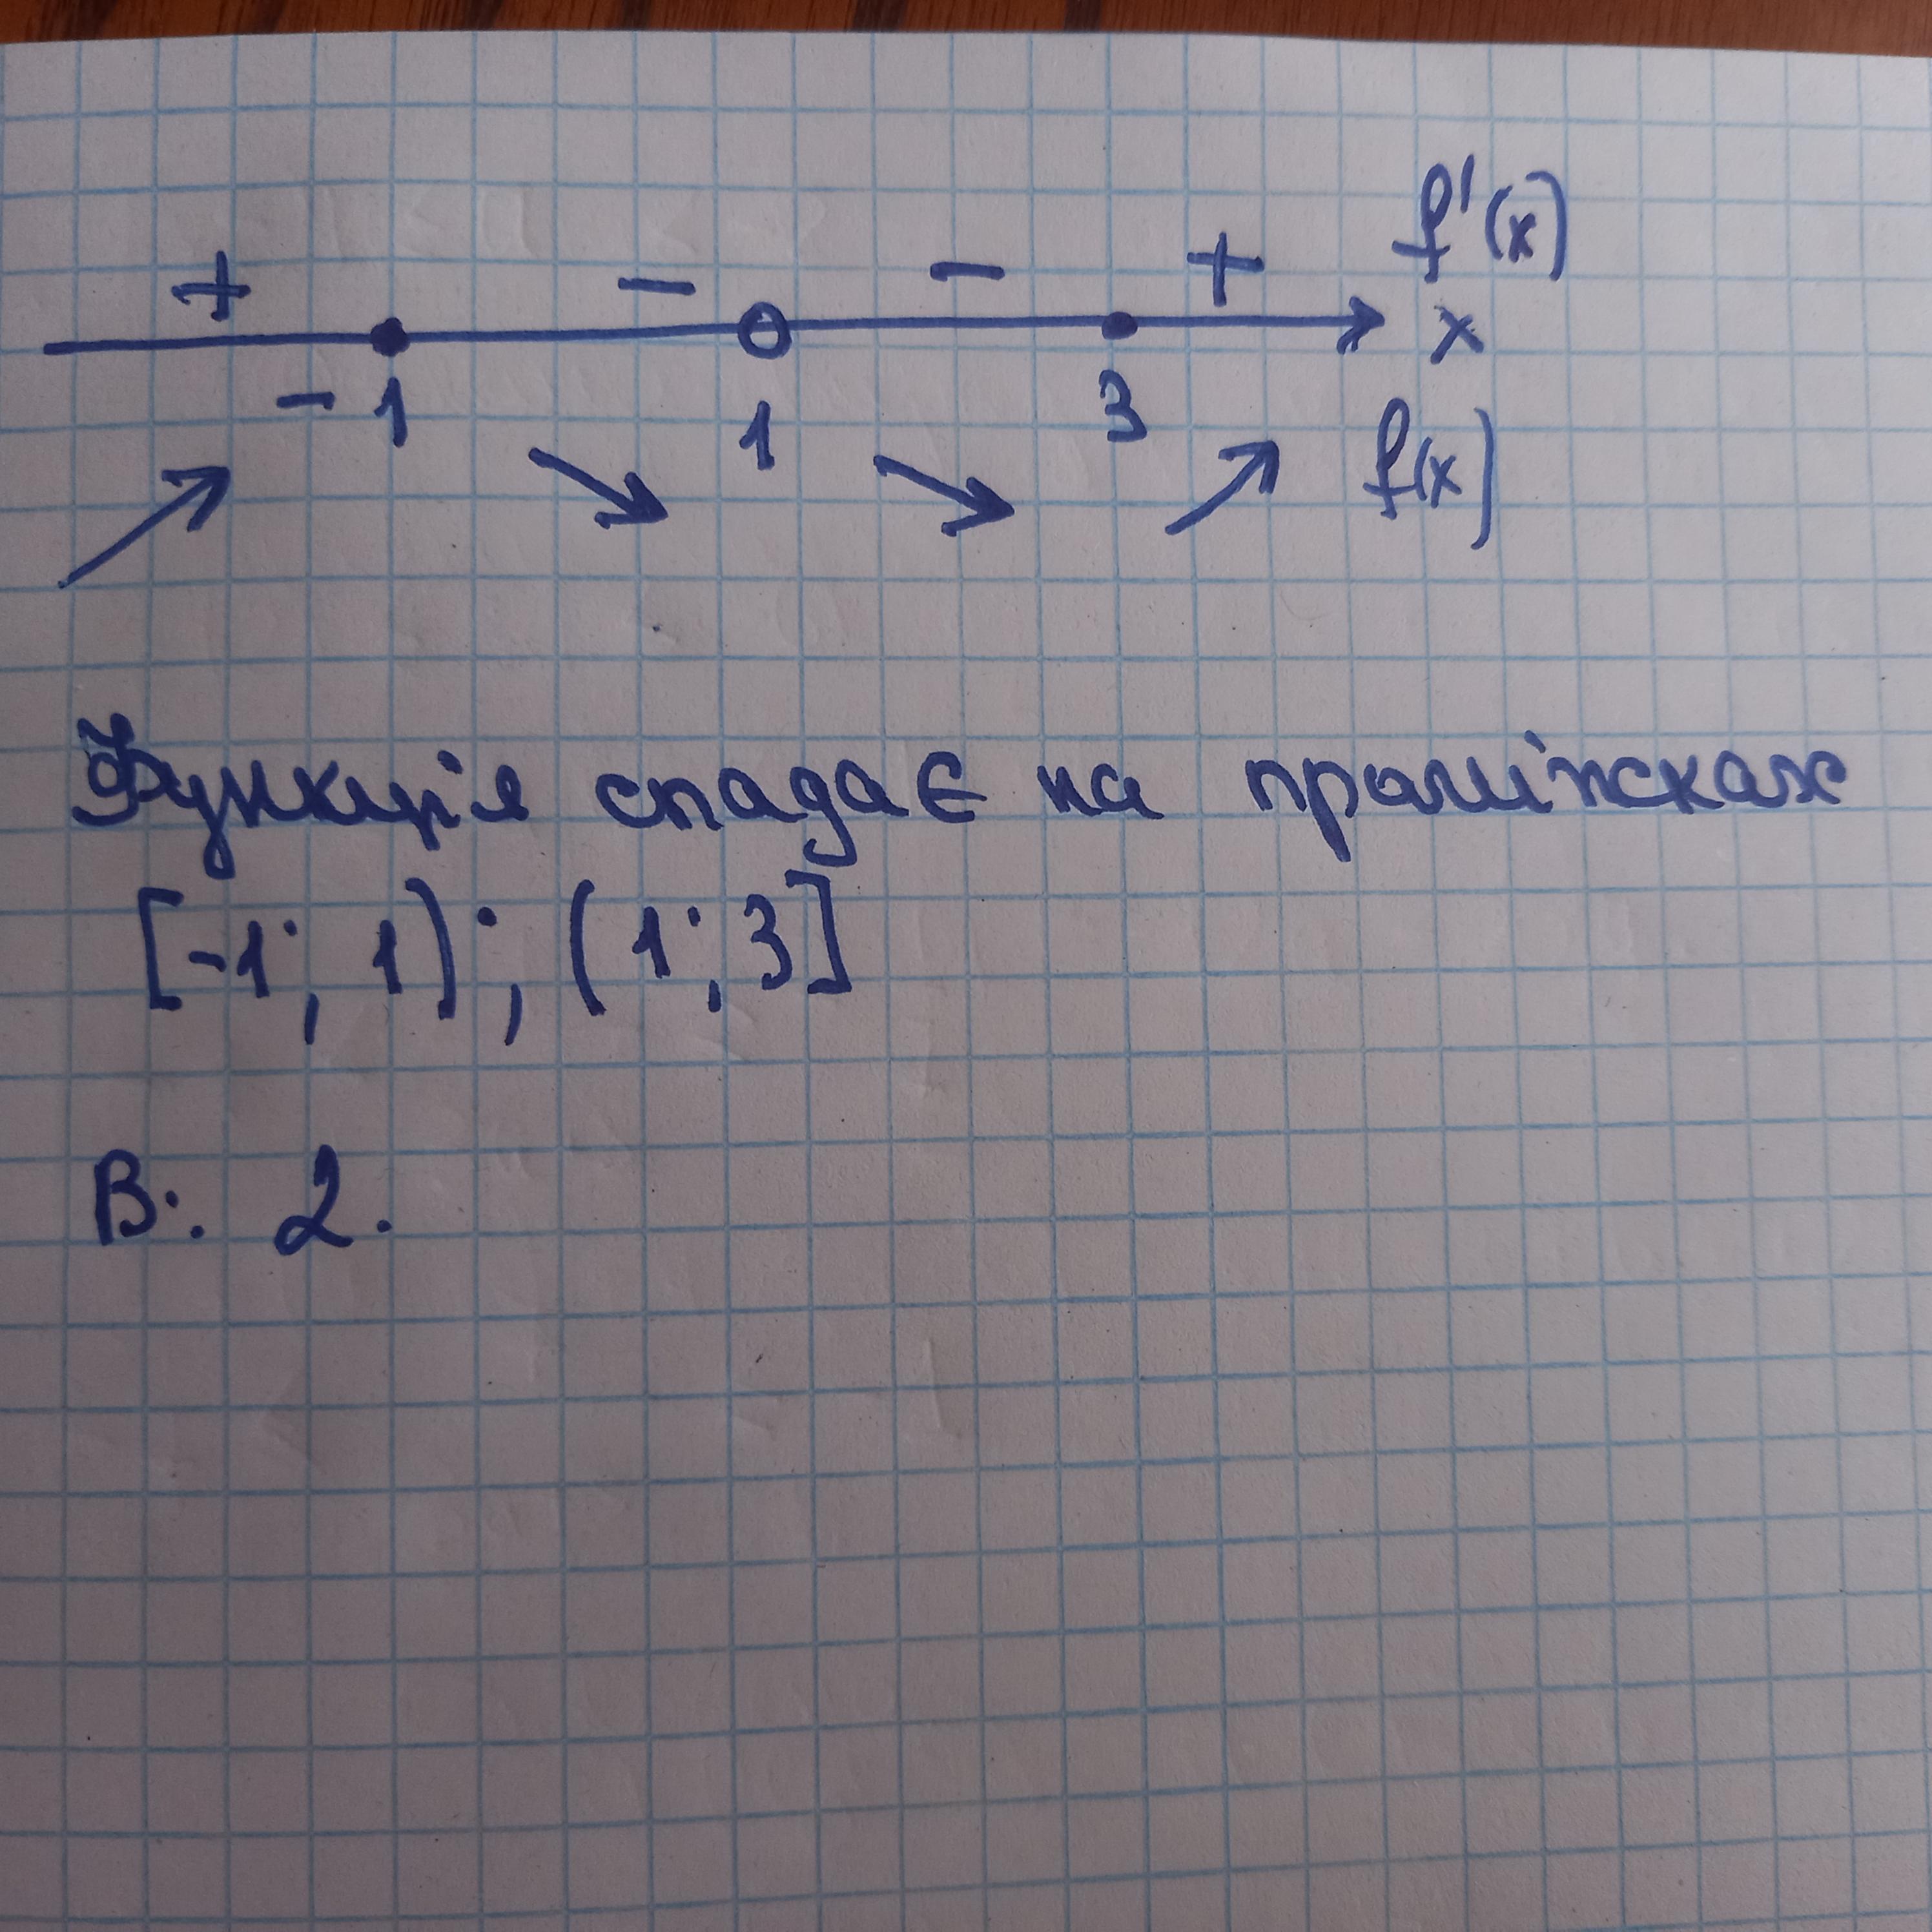 + - - + f'(x)
x
-1 1 3
f(x)
Функція спадає на проміжках
[-1; 1); (1; 3]
В: 2.